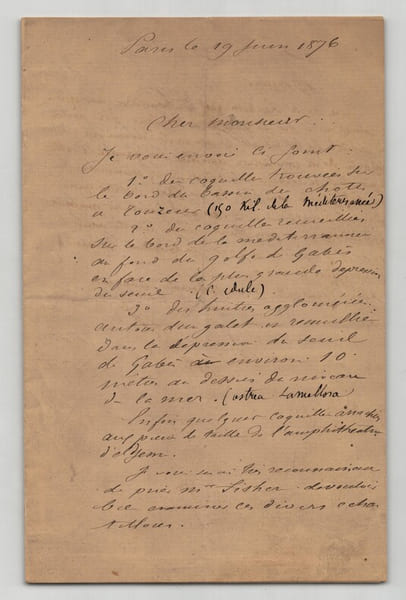 Paris le 19 Juin 1876
Cher monsieur :
Je vous envoie ci joint
1º des coquilles trouvées sur
le bord du bassin des chotts
à (150 Kil. de la Méditerranée)
2º des coquilles recueillies
sur le bord de la mediterrannée
au fond du golfe de Gabès
en face de la plus grande depression
du seuil (C. edule).
3º des huitres agglomérées
autour d'un galet et recueillies
dans la depression du seuil
de Gabès à environ 10
mètres au dessus du niveau
de la mer. (ostrea Lamellosa)
Enfin quelques coquilles
aux pierres de taille de l'amphithéatre
d'eljem.
Je vous serai très reconnaissant
de prier Mr Fisher de vouloir
bien examiner ces divers echan
tillons.